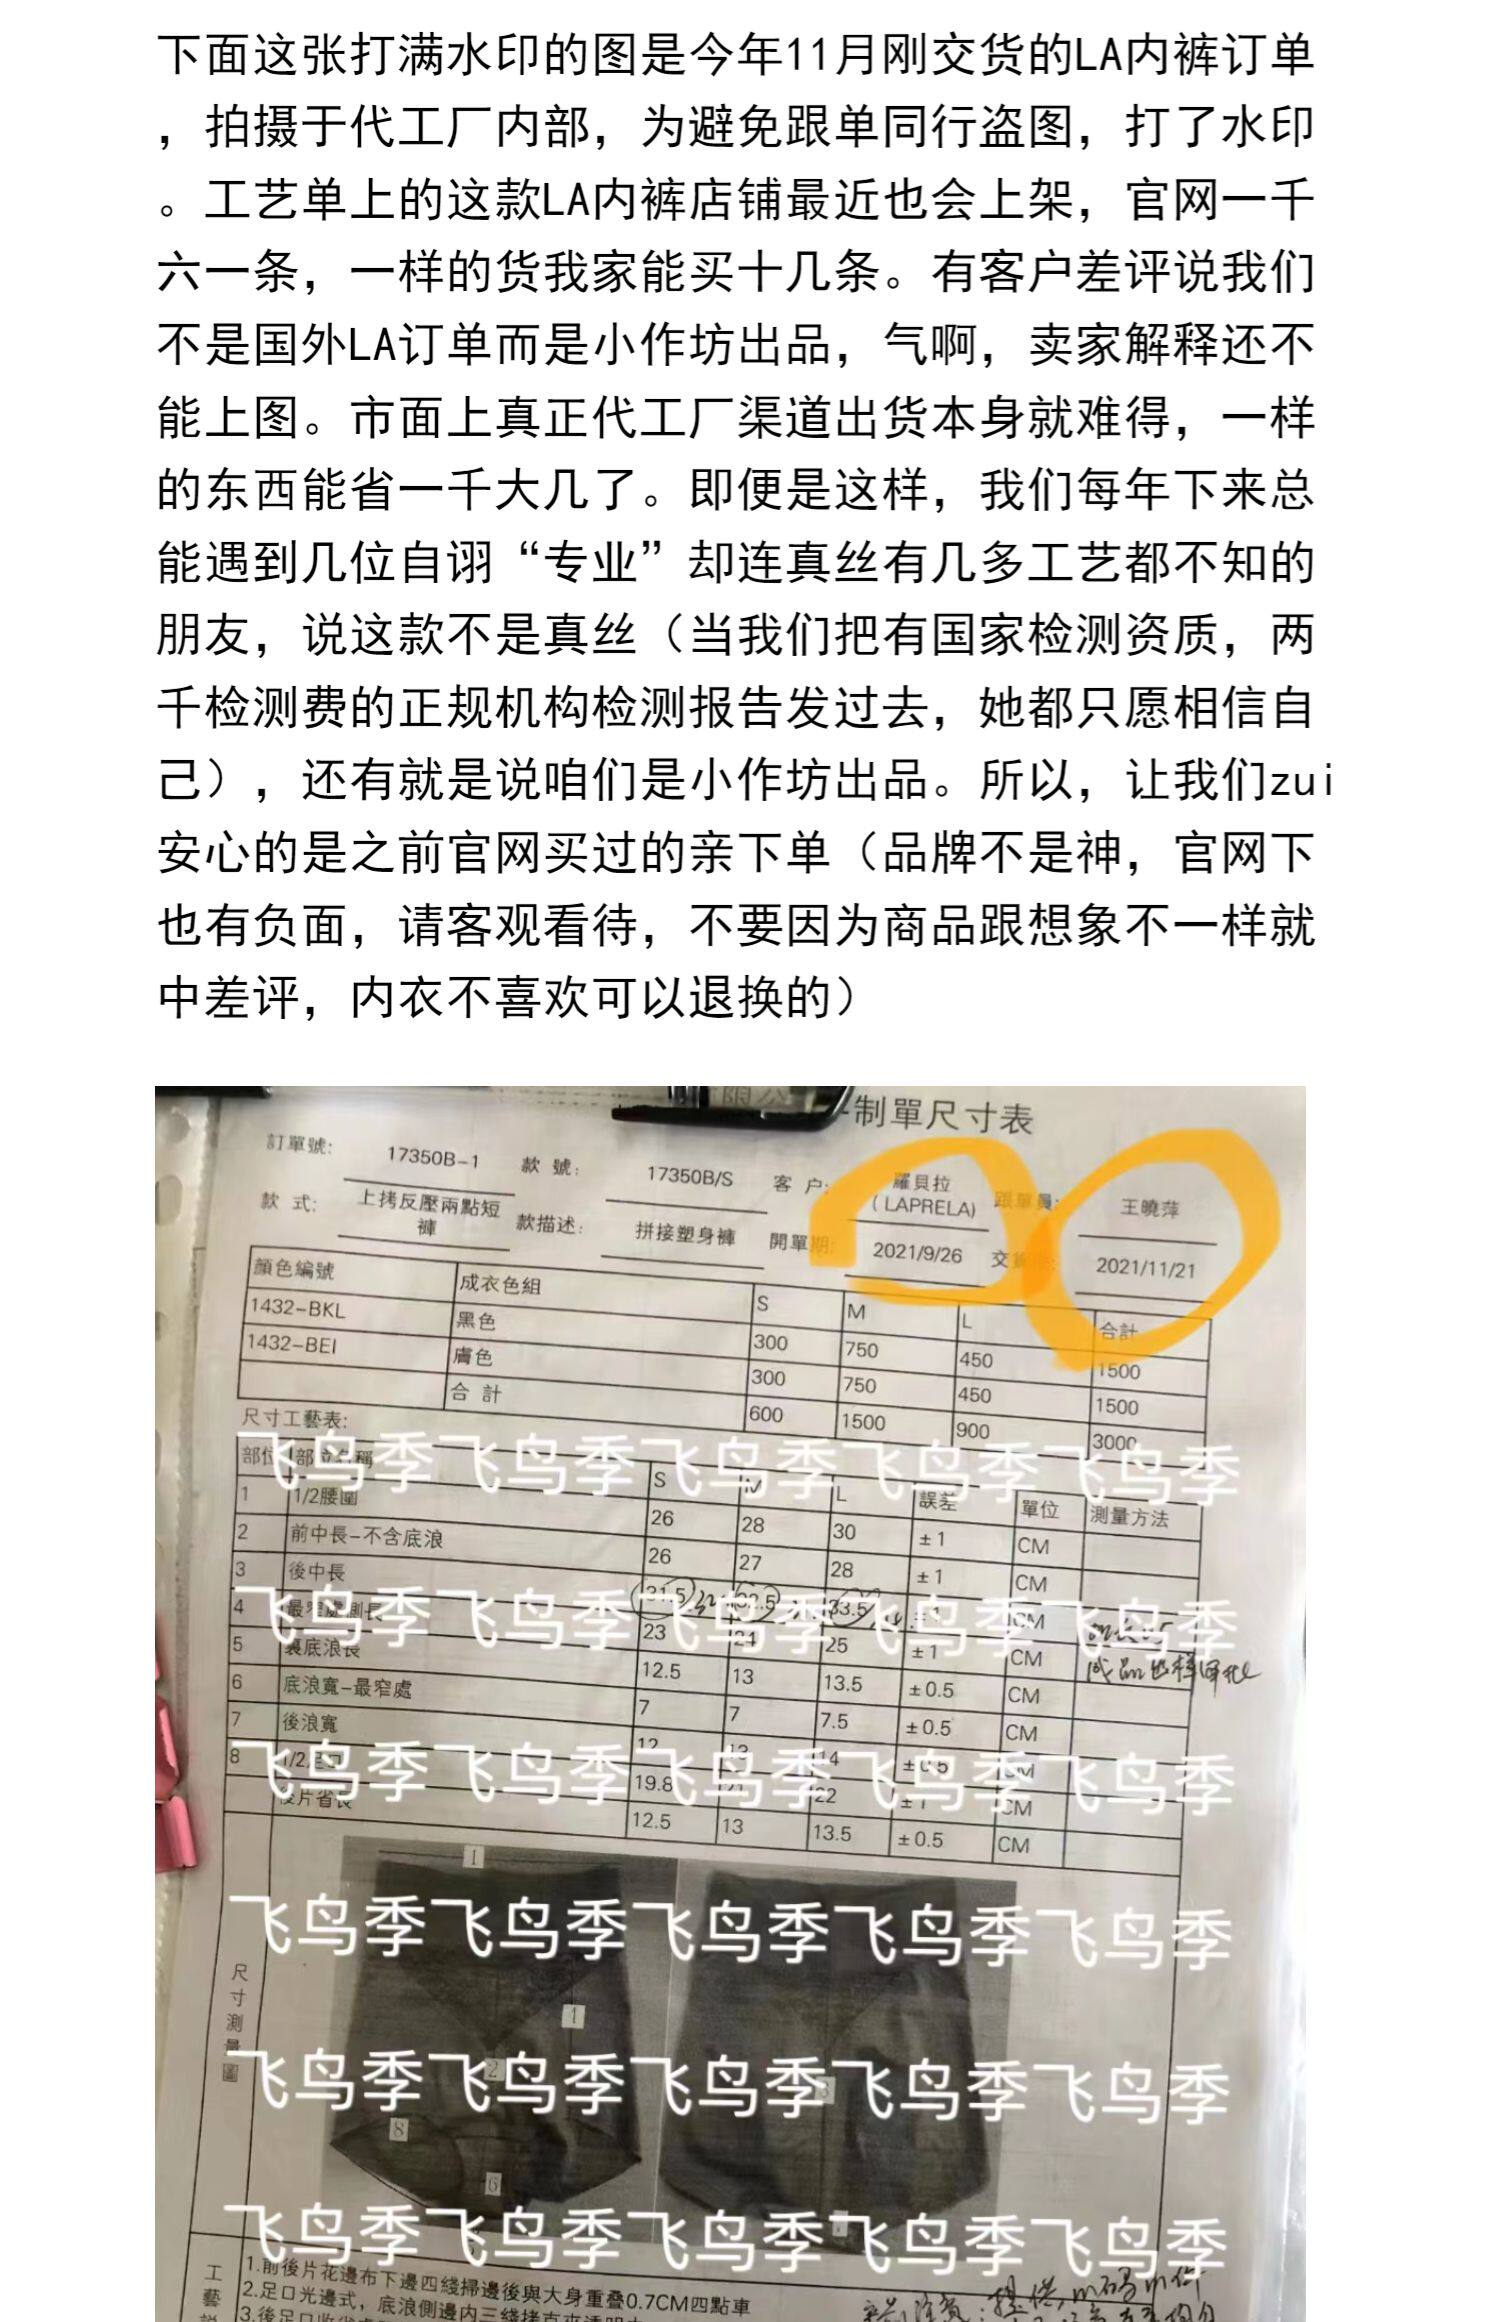 下面这张打满水印的图是今年11月刚交货的LA内裤订单
，拍摄于代工厂内部，为避免跟单同行盗图，打了水印
。工艺单上的这款LA内裤店铺最近也会上架，官网一千
六一条，一样的货我家能买十几条。有客户差评说我们
不是国外LA订单而是小作坊出品，气啊，卖家解释还不
能上图。市面上真正代工厂渠道出货本身就难得，一样
的东西能省一千大几了。即便是这样，我们每年下来总
能遇到几位自诩“专业”却连真丝有几多工艺都不知的
朋友，说这款不是真丝（当我们把有国家检测资质，两
千检测费的正规机构检测报告发过去，她都只愿相信自
己），还有就是说咱们是小作坊出品。所以，让我们zui
安心的是之前官网买过的亲下单（品牌不是神，官网下
也有负面，请客观看待，不要因为商品跟想象不一样就
中差评，内衣不喜欢可以退换的）
制單尺寸表
訂單號: 17350B-1 款 號: 17350B/S 客 户: 羅貝拉 (LAPRELA) 跟單員: 王曉萍
款 式: 上拷反壓兩點短褲 款描述: 拼接塑身褲 開單期: 2021/9/26 交 2021/11/21
顏色編號 成衣色組 S M L 合計
1432-BKL 黑色 300 750 450 1500
1432-BEI 膚色 300 750 450 1500
合 計 600 1500 900 3000
尺寸工藝表:
飞鸟季飞鸟季飞鸟季飞鸟季飞鸟季
部位 部位名稱 S M L 誤差 單位 測量方法
1 1/2腰圍 26 28 30 ±1 CM
2 前中長-不含底浪 26 27 28 ±1 CM
3 後中長 31.5 32.5 33.5 ±1 CM
飞鸟季飞鸟季飞鸟季飞鸟季飞鸟季
4 最窄處側長 23 24 25 ±1 CM
成品
5 裏底浪長 12.5 13 13.5 ±0.5 CM
6 底浪寬-最窄處 7 7 7.5 ±0.5 CM
7 後浪寬 12 13 14 ±0.5 CM
飞鸟季飞鸟季飞鸟季飞鸟季飞鸟季
8 1/2足口 19.8 21 22 ±1 CM
後片省長 12.5 13 13.5 ±0.5 CM
1
飞鸟季飞鸟季飞鸟季飞鸟季飞鸟季
尺寸測量圖
4
2
3
飞鸟季飞鸟季飞鸟季飞鸟季飞鸟季
8
6
飞鸟季飞鸟季飞鸟季飞鸟季飞鸟季
工藝
1.前後片花邊布下邊四綫掃邊後與大身重叠0.7CM四點車
2.足口光邊式，底浪側邊内三綫拷克
3.後足口